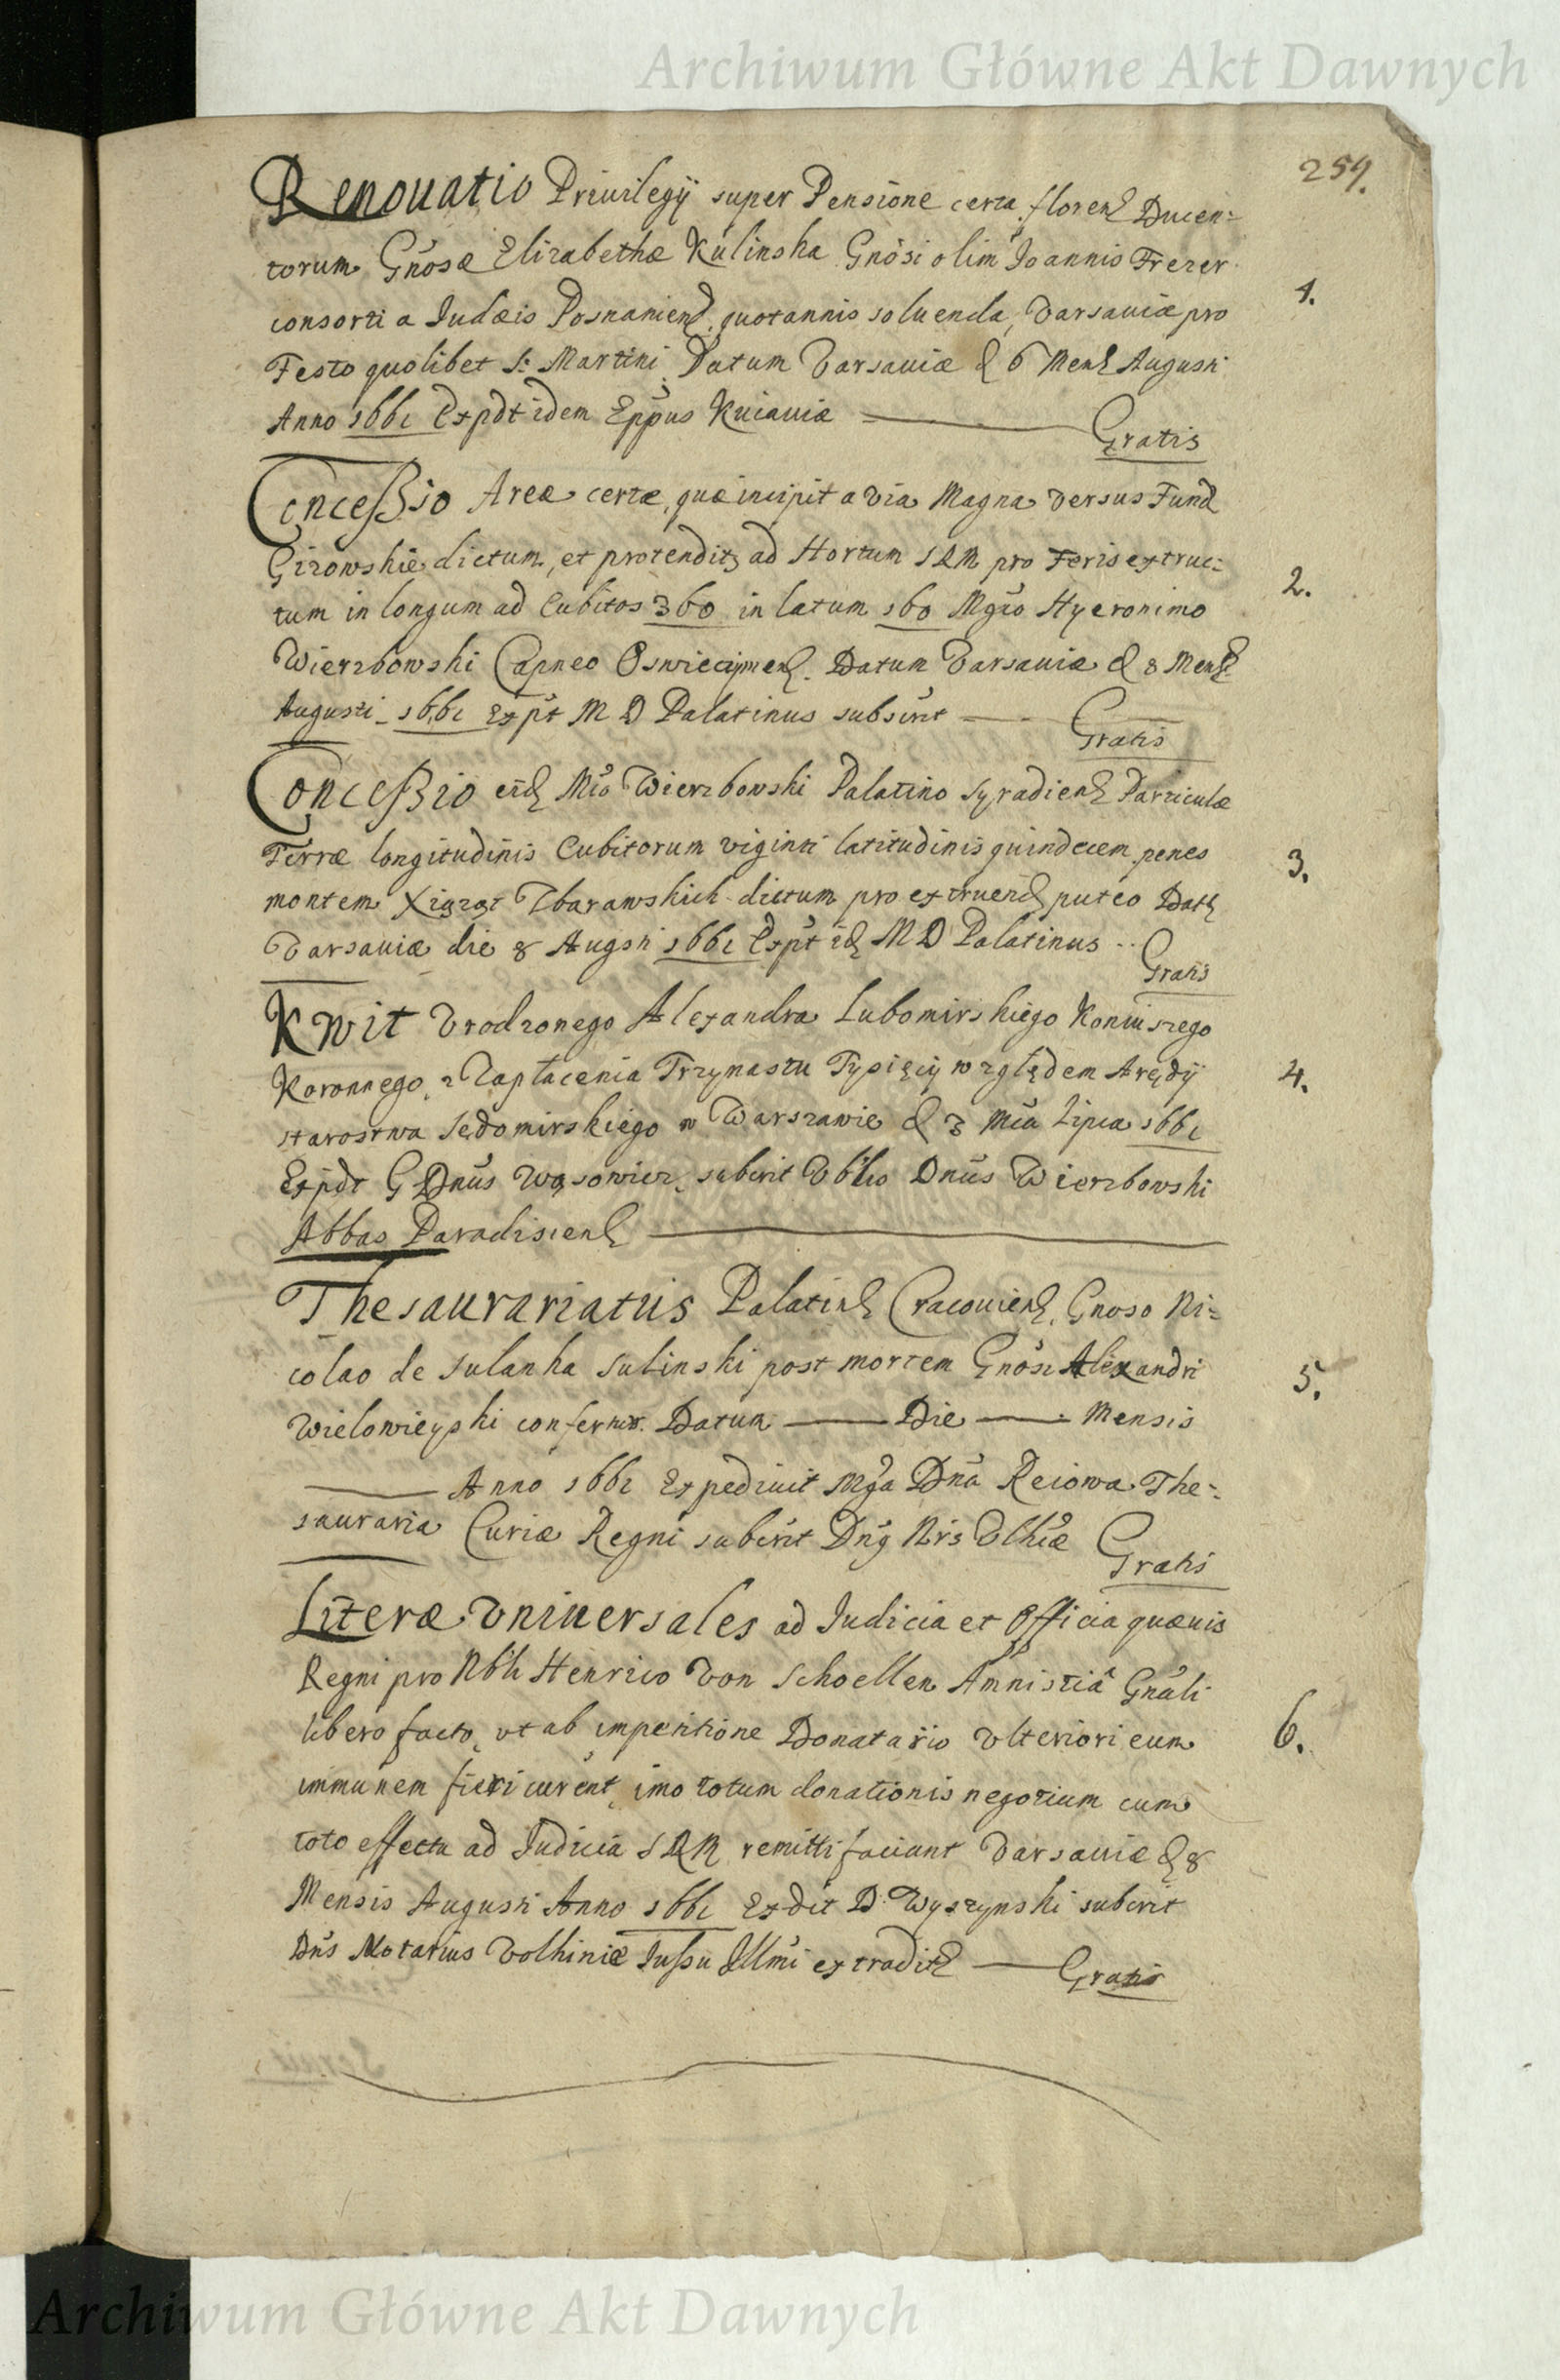 Archiwum Główne Akt Dawnych
259.
Renouatio Priuilegij super Pensione certa floren Ducen=
torum Gnosæ Elizabethæ Kulinska Gnosi olim Joannis Frezer
consorti a Judæis Posnanien. quotannis soluenda, Varsauiæ pro
1.
Festo quolibet S: Martini Datum Varsauiæ d 6 Mens Augusti
Anno 1661 Expdt idem Eppus Kuiauiæ
Gratis
Concessio Areæ certæ, quæ incipit a via Magna versus Fund
Gizowskie dictum, et protendit ad Hortum SRM pro Feris extruc=
2.
tum in longum ad Cubitos 360 in latum 160 Mgco Hyeronimo
Wierzbowski Capneo Oswiecimen. Datum Varsauiæ d 8 Mens
Augusti 1661 Expt M D Palatinus subscrit
Gratis
Concessio eid Mco Wierzbowski Palatino Syradien Particulæ
Terræ longitudinis Cubitorum viginti latitudinis quindecem penes
3.
montem Xiążąt Zbarawskich dictum pro extruend puteo Dat
Varsauiæ die 8 Augsti 1661 Expt id M D Palatinus
Gratis
Kwit Vrodzonego Alexandra Lubomirskiego Koniuszego
Koronnego, z Zapłacenia Trzynastu Tysięcy względem Arędy
4.
starostwa Sędomirskiego w Warszawie d 3 Mca Lipca 1661
Expdt G Dnus Wąsowicz, subcrit Vblio Dnus Wierzbowski
Abbas Paradisien
Thesaurariatus Palatin Cracouien. Gnoso Ni=
colao de Sulanka Sulinski post mortem Gnosi Alexandri
5.
Wielowieyski confertur. Datum Die Mensis
Anno 1661 Expediuit Mga Dna Reiowa The=
sauraria Curiæ Regni subcrit Dng Nrs Vlhiæ
Gratis
Literæ Vniuersales ad Judicia et Officia quæuis
Regni pro Nbli Henrico Von Schoellen Amnistiâ Gnali
6.
libero facto, vt ab impetitione Donatario vlteriori eum
immunem fieri curent, imo totum donationis negotium cum
toto effectu ad Judicia SRM remitti faciant Varsauiæ d 8
Mensis Augusti Anno 1661 Exdit D. Wyszynski subcrit
Dns Notarius Volhiniæ Jussu Illmi extradit
Gratis
Archiwum Główne Akt Dawnych